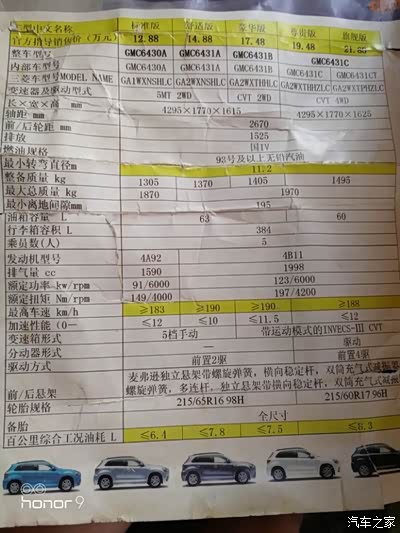 型中文名称 标准版 舒适版 豪华版 尊贵版 旗舰版
官方指导销售价（万元） 12.88 14.88 17.48 19.48 21.88
整车型号 GMC6430A GMC6431A GMC6431B GMC6431C
内部车型号 GMC6430A GMC6431A GMC6431B GMC6431C GMC6431CT
三菱车型号MODEL NAME GA1WXNSHLC GA2WXNSHLC GA2WXTHHZLC GA2WXTHHZLC GA2WXTHPZLC
变速器及驱动型式 5MT 2WD CVT 2WD CVT 4WD
长×宽×高 mm 4295×1770×1615 4295×1770×1625
轴距 mm 2670
前/后轮距 mm 1525
排放 国IV
燃油规格 93号及以上无铅汽油
最小转弯直径m 11.2
整备质量 kg 1305 1370 1405 1495
最大总质量 kg 1870 1970
最小离地间隙mm 195
油箱容量 L 63 60
行李箱容积 L 384
乘员数(人) 5
发动机型号 4A92 4B11
排气量 cc 1590 1998
额定功率 kw/rpm 91/6000 123/6000
额定扭矩 Nm/rpm 149/4000 197/4200
最高车速 km/h ≥183 ≥190 ≥190 ≥188
加速性能 (0— ≤12 ≤10 ≤11.5 ≤12
变速箱形式 5档手动 带运动模式的INVECS-III CVT
分动器形式 — 驱动
驱动方式 前置2驱 前置4驱
前/后悬架 麦弗逊独立悬架带螺旋弹簧，横向稳定杆，双筒充气式减振器
螺旋弹簧，多连杆，独立悬架带横向稳定杆，双筒充气式减
轮胎规格 215/65R16 98H 215/60R17 96H
备胎 全尺寸
百公里综合工况油耗 L ≤6.4 ≤7.8 ≤7.5 ≤8.3
honor 9
汽车之家